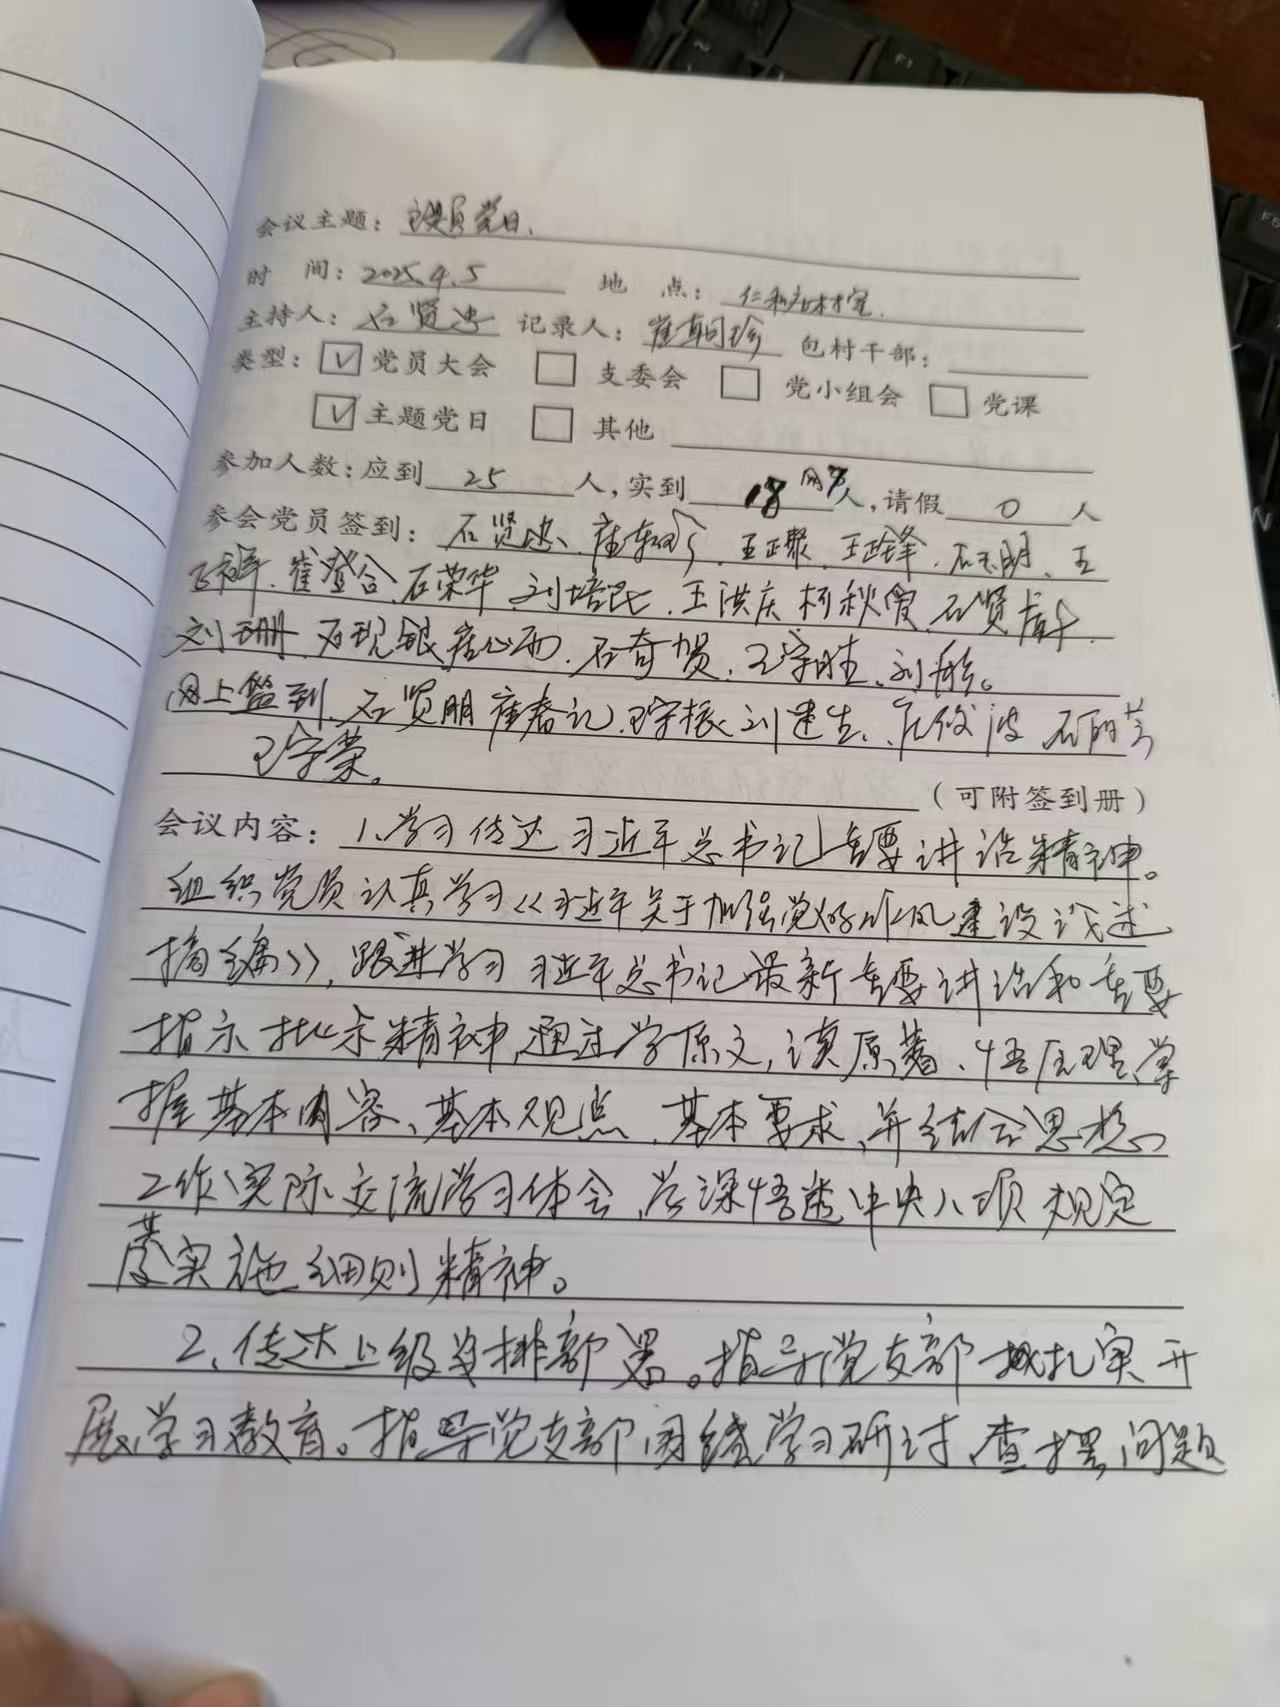 会议主题：党员党日.
时 间：2025.4.5 地 点：仁和庄村室.
主持人：石贤忠 记录人：崔朝珍 包村干部：
类型：☑党员大会 □支委会 □党小组会 □党课
☑主题党日 □其他
参加人数：应到25人，实到18网7人，请假0人
参会党员签到：石贤忠、王正聚、王玉明、王
崔登合、石荣华、刘培民、王洪庆、柯秋贤、石贤
刘珊、石现银、石奇贺、王守胜、刘彤。
网上签到、石贤明、崔春记、王守振、刘建生、石俊波、石丽芳
王守荣。
（可附签到册）
会议内容：1、学习传达习近平总书记重要讲话精神。
组织党员认真学习《习近平关于加强党的作风建设论述
摘编》，跟进学习习近平总书记最新重要讲话和重要
指示批示精神，通过学原文，读原著、悟原理，掌
握基本内容、基本观点、基本要求，并结合思想、
工作实际交流学习体会，学深悟透中央八项规定
及其实施细则精神。
2、传达上级安排部署。指导党支部扎实开
展学习教育。指导党支部围绕学习研讨、查摆问题